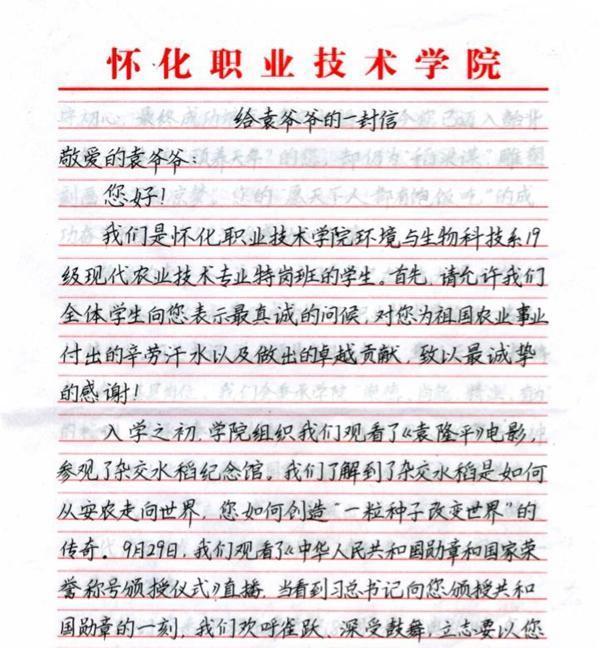 怀化职业技术学院
给袁爷爷的一封信
敬爱的袁爷爷:
您好!
我们是怀化职业技术学院环境与生物科技系19
级现代农业技术专业特岗班的学生。首先,请允许我们
全体学生向您表示最真诚的问候,对您为祖国农业事业
付出的辛劳汗水以及做出的卓越贡献,致以最诚挚
的感谢!
入学之初,学院组织我们观看了《袁隆平》电影,
参观了杂交水稻纪念馆。我们了解到了杂交水稻是如何
从安农走向世界,您如何创造“一粒种子改变世界”的
传奇。9月29日,我们观看了《中华人民共和国勋章和国家荣
誉称号颁授仪式》直播,当看到习总书记向您颁授共和
国勋章的一刻,我们欢呼雀跃、深受鼓舞,立志要以您